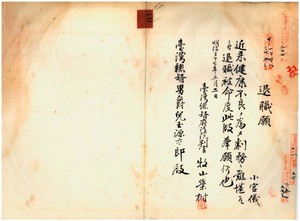 退職願
小官儀
近来健康不良ノ為メ劇務ニ難堪候
ニ付退職被命度此段奉願候也
明治三十七年三月二日
臺灣總督府法院判官 牧山榮樹
臺灣總督男爵兒玉源太郎殿